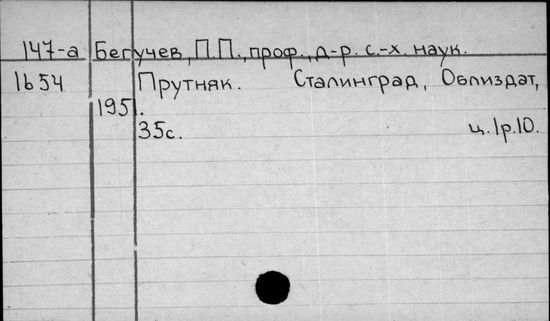 147-а Бегучев, П.П., проф., д-р. с.-х. наук.
1654 Прутняк. Сталинград, Облиздат,
1951.
35с. ц.1р.10.